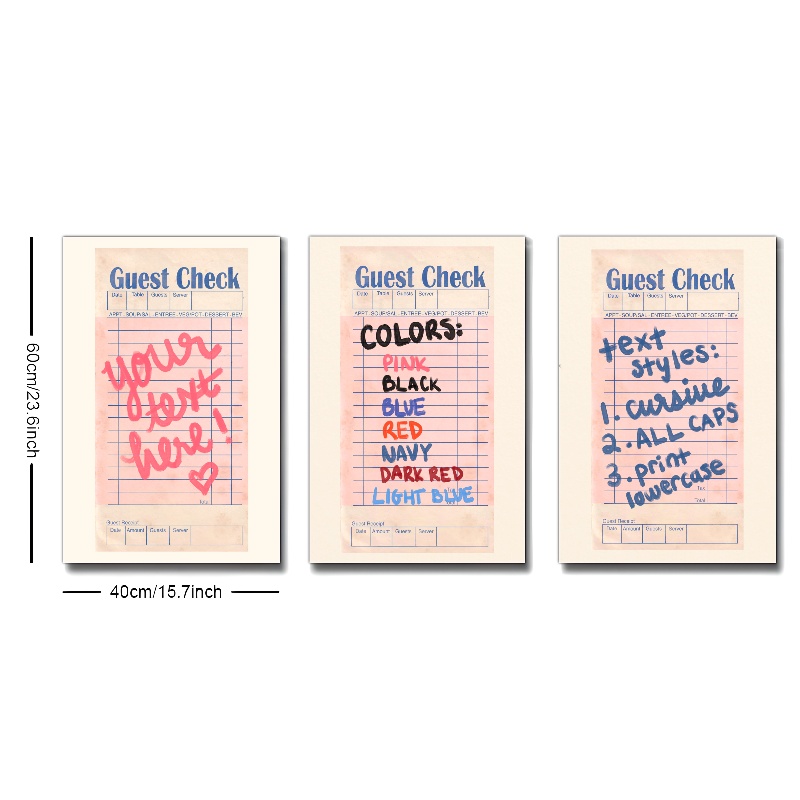 60cm/23.6inch
40cm/15.7inch
Guest Check
Date Table Guests Server
APPT-SOUP/SAL-ENTREE-VEG/POT-DESSERT-BEV
your
text
here!
Total
Guest Receipt
Date Amount Guests Server
Guest Check
Date Table Guests Server
APPT-SOUP/SAL-ENTREE-VEG/POT-DESSERT-BEV
COLORS:
PINK
BLACK
BLUE
RED
NAVY
DARK RED
LIGHT BLUE
Guest Receipt
Date Amount Guests Server
Guest Check
Date Table Guests Server
APPT-SOUP/SAL-ENTREE-VEG/POT-DESSERT-BEV
text
styles:
1. cursive
2. ALL CAPS
3. print
lowercase
Tax
Total
Guest Receipt
Date Amount Guests Server